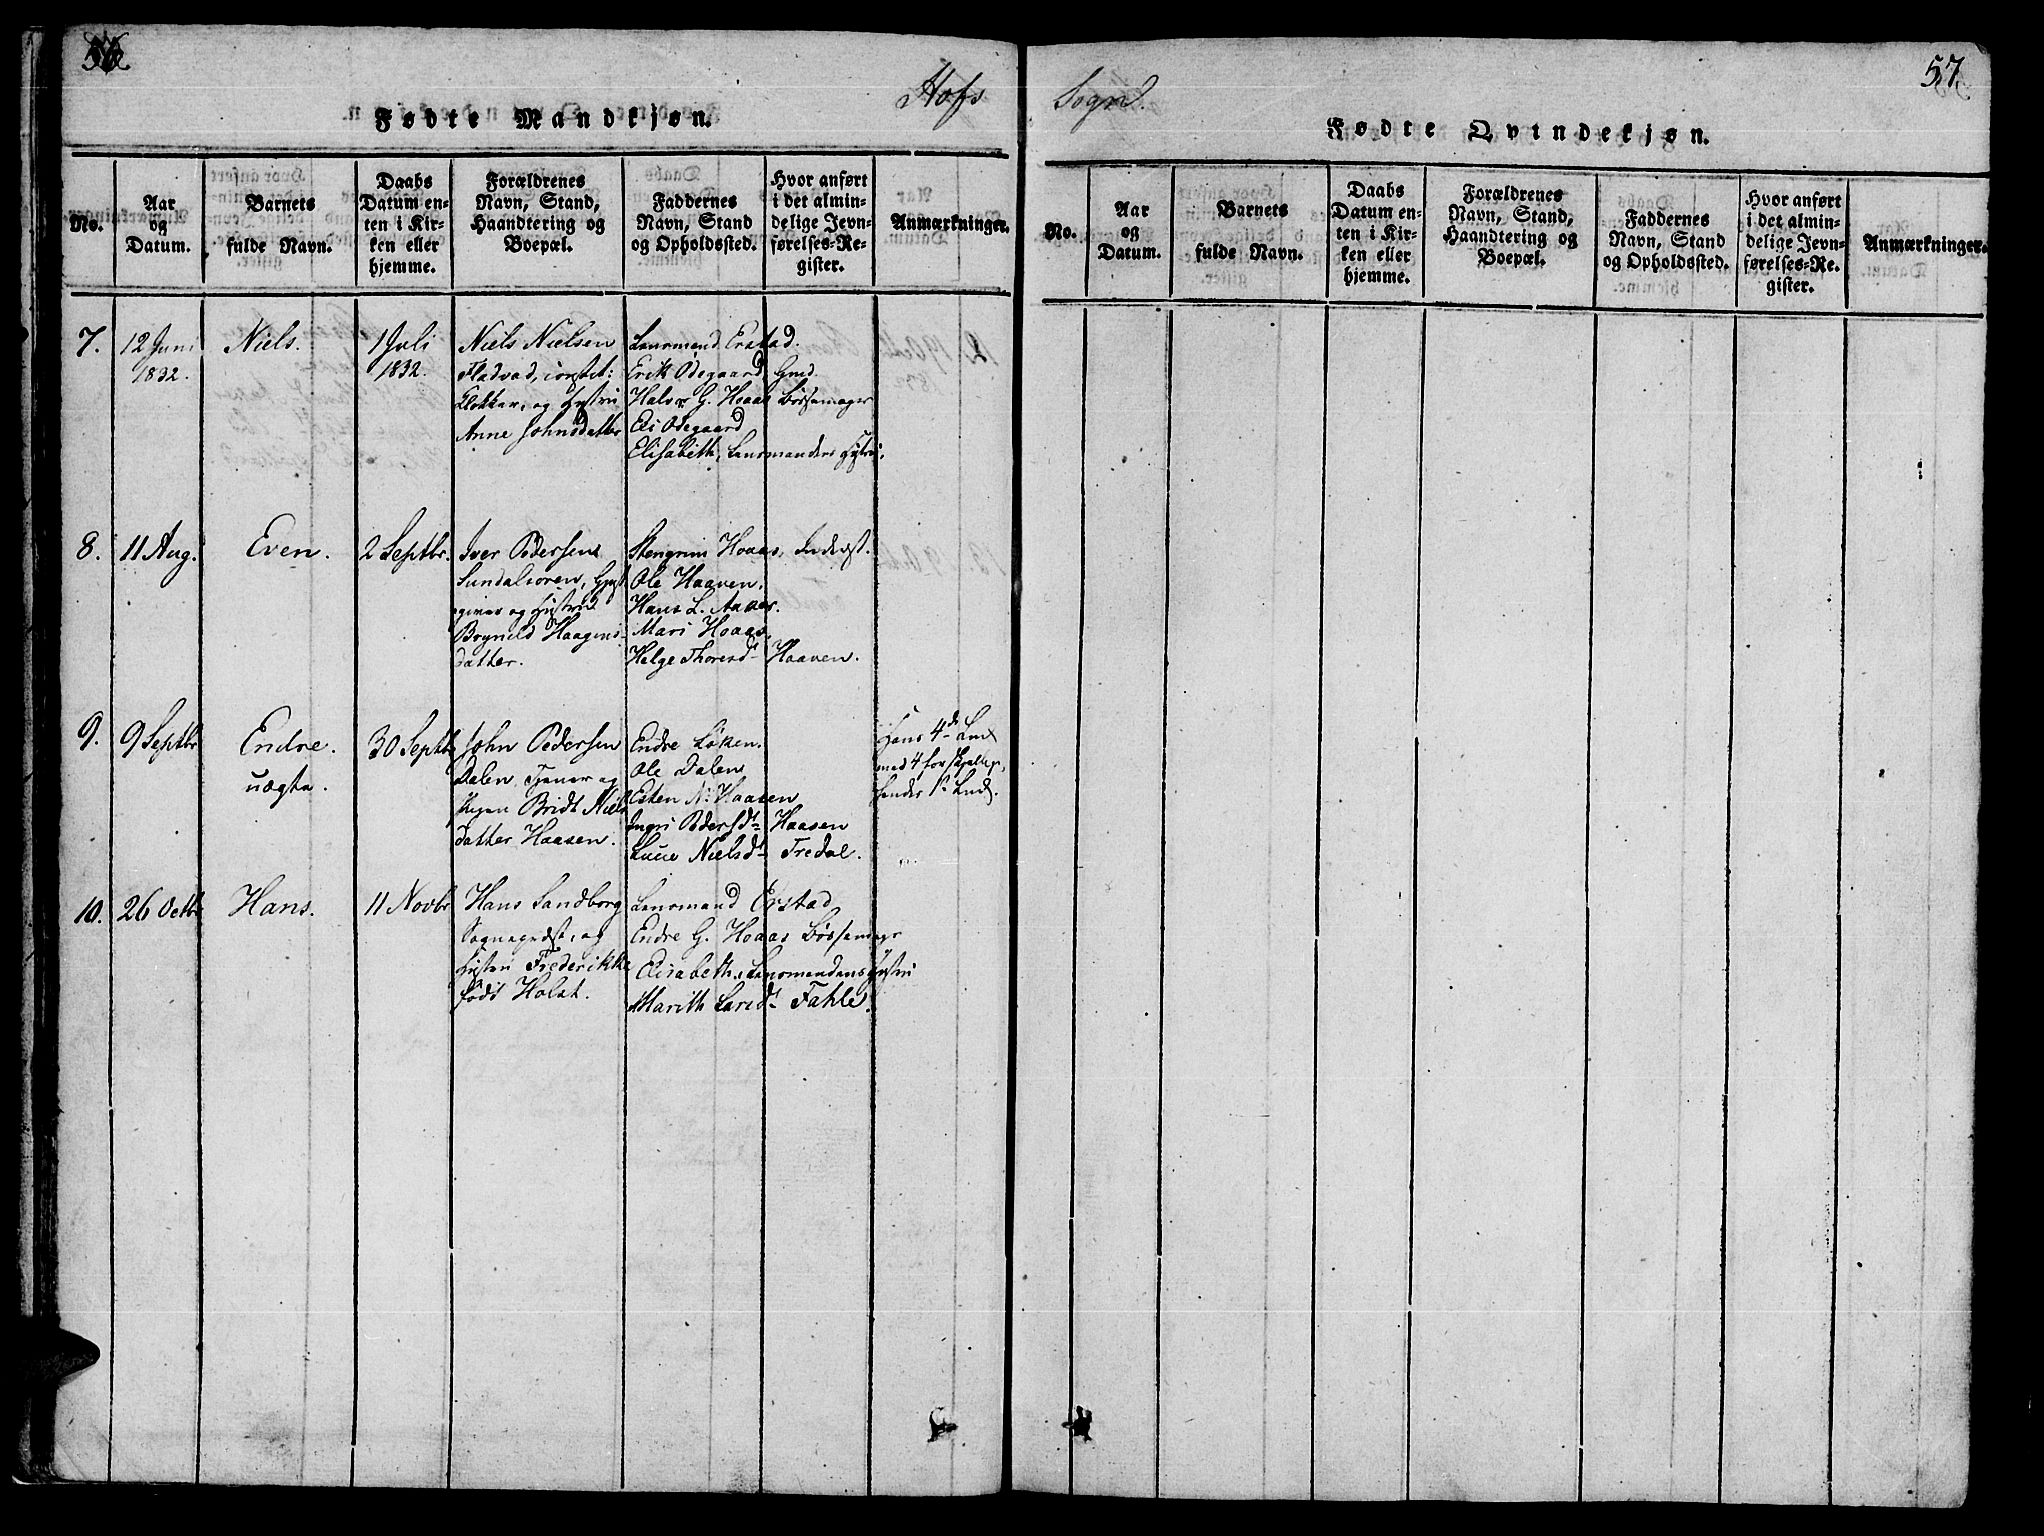 56
Hofs Sogn.
57
Fødte Mandkjøn.
No.
Aar og Datum.
Barnets fulde Navn.
Daabs Datum enten i Kirken eller hjemme.
Forældrenes Navn, Stand, Haandtering og Boepæl.
Faddernes Navn, Stand og Opholdssted.
Hvor anført i det almindelige Jevnførelses-Register.
Anmærkninger.
7.
12 Juni
1832.
Niels.
1 Juli
1832.
Niels Nielsen
Fladvad, const:
Klokker, og Hustru
Anne Johnsdatter
Lensmand Erstad.
Erik Ødegaard, Gmd.
Halvor G. Hoaas Bøssemager
Eli Ødegaard
Elisabeth, Lensmandens Hustru.
8.
11 Aug.
Even.
2 Septbr.
Iver Pedersen
Sundalsøren, Gjest
giver og Hustru
Brynild Haagens-
datter.
Stengrim Hoaas, Inderst.
Ole Haaven.
Hans L.
Mari Hoaas,
Helge Thoresd. Haaven.
9.
9 Septbr
Endre.
uægte.
30 Septbr
John Pedersen
Dalen, Tjener og
Pigen Bridt Niels
datter Haasen.
Endre Løken.
Ole Dalen
Esten N. Haasen
Ingri Pedersd. Haasen
Nielsd. Fredal.
Hans 4de
med 4 forskjellige,
hendes 1ste
10.
26 Octbr
Hans.
11 Novbr
Hans Sandborg
Sognepræst, og
Hustru Frederikke
født Holst.
Lensmand Erstad
Endre G. Hoaas Bøssemager
Elisabeth, Lensmandens Hustru
Marith Larsd. Fahle.
Fødte Qvindekjøn.
No.
Aar og Datum.
Barnets fulde Navn.
Daabs Datum enten i Kirken eller hjemme.
Forældrenes Navn, Stand, Haandtering og Boepæl.
Faddernes Navn, Stand og Opholdssted.
Hvor anført i det almindelige Jevnførelses-Register.
Anmærkninger.